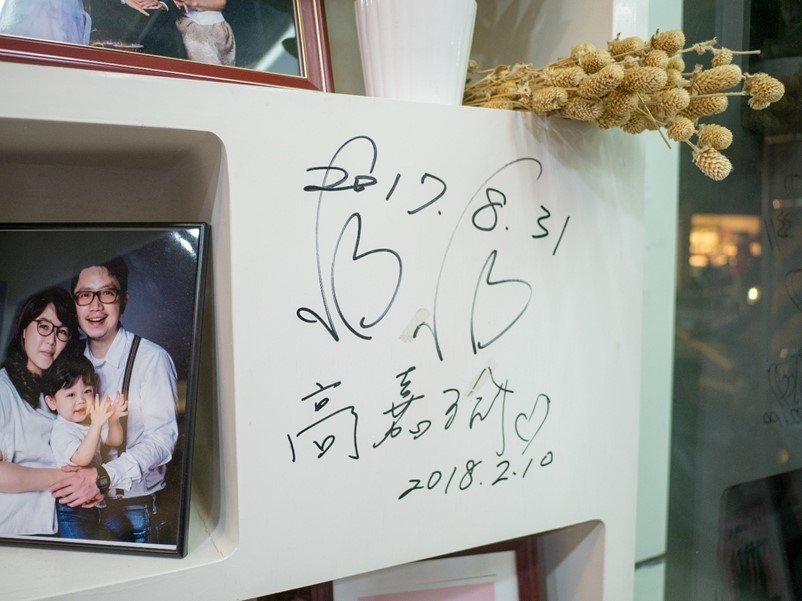 2017.8.31
高嘉瑜♡
2018.2.10